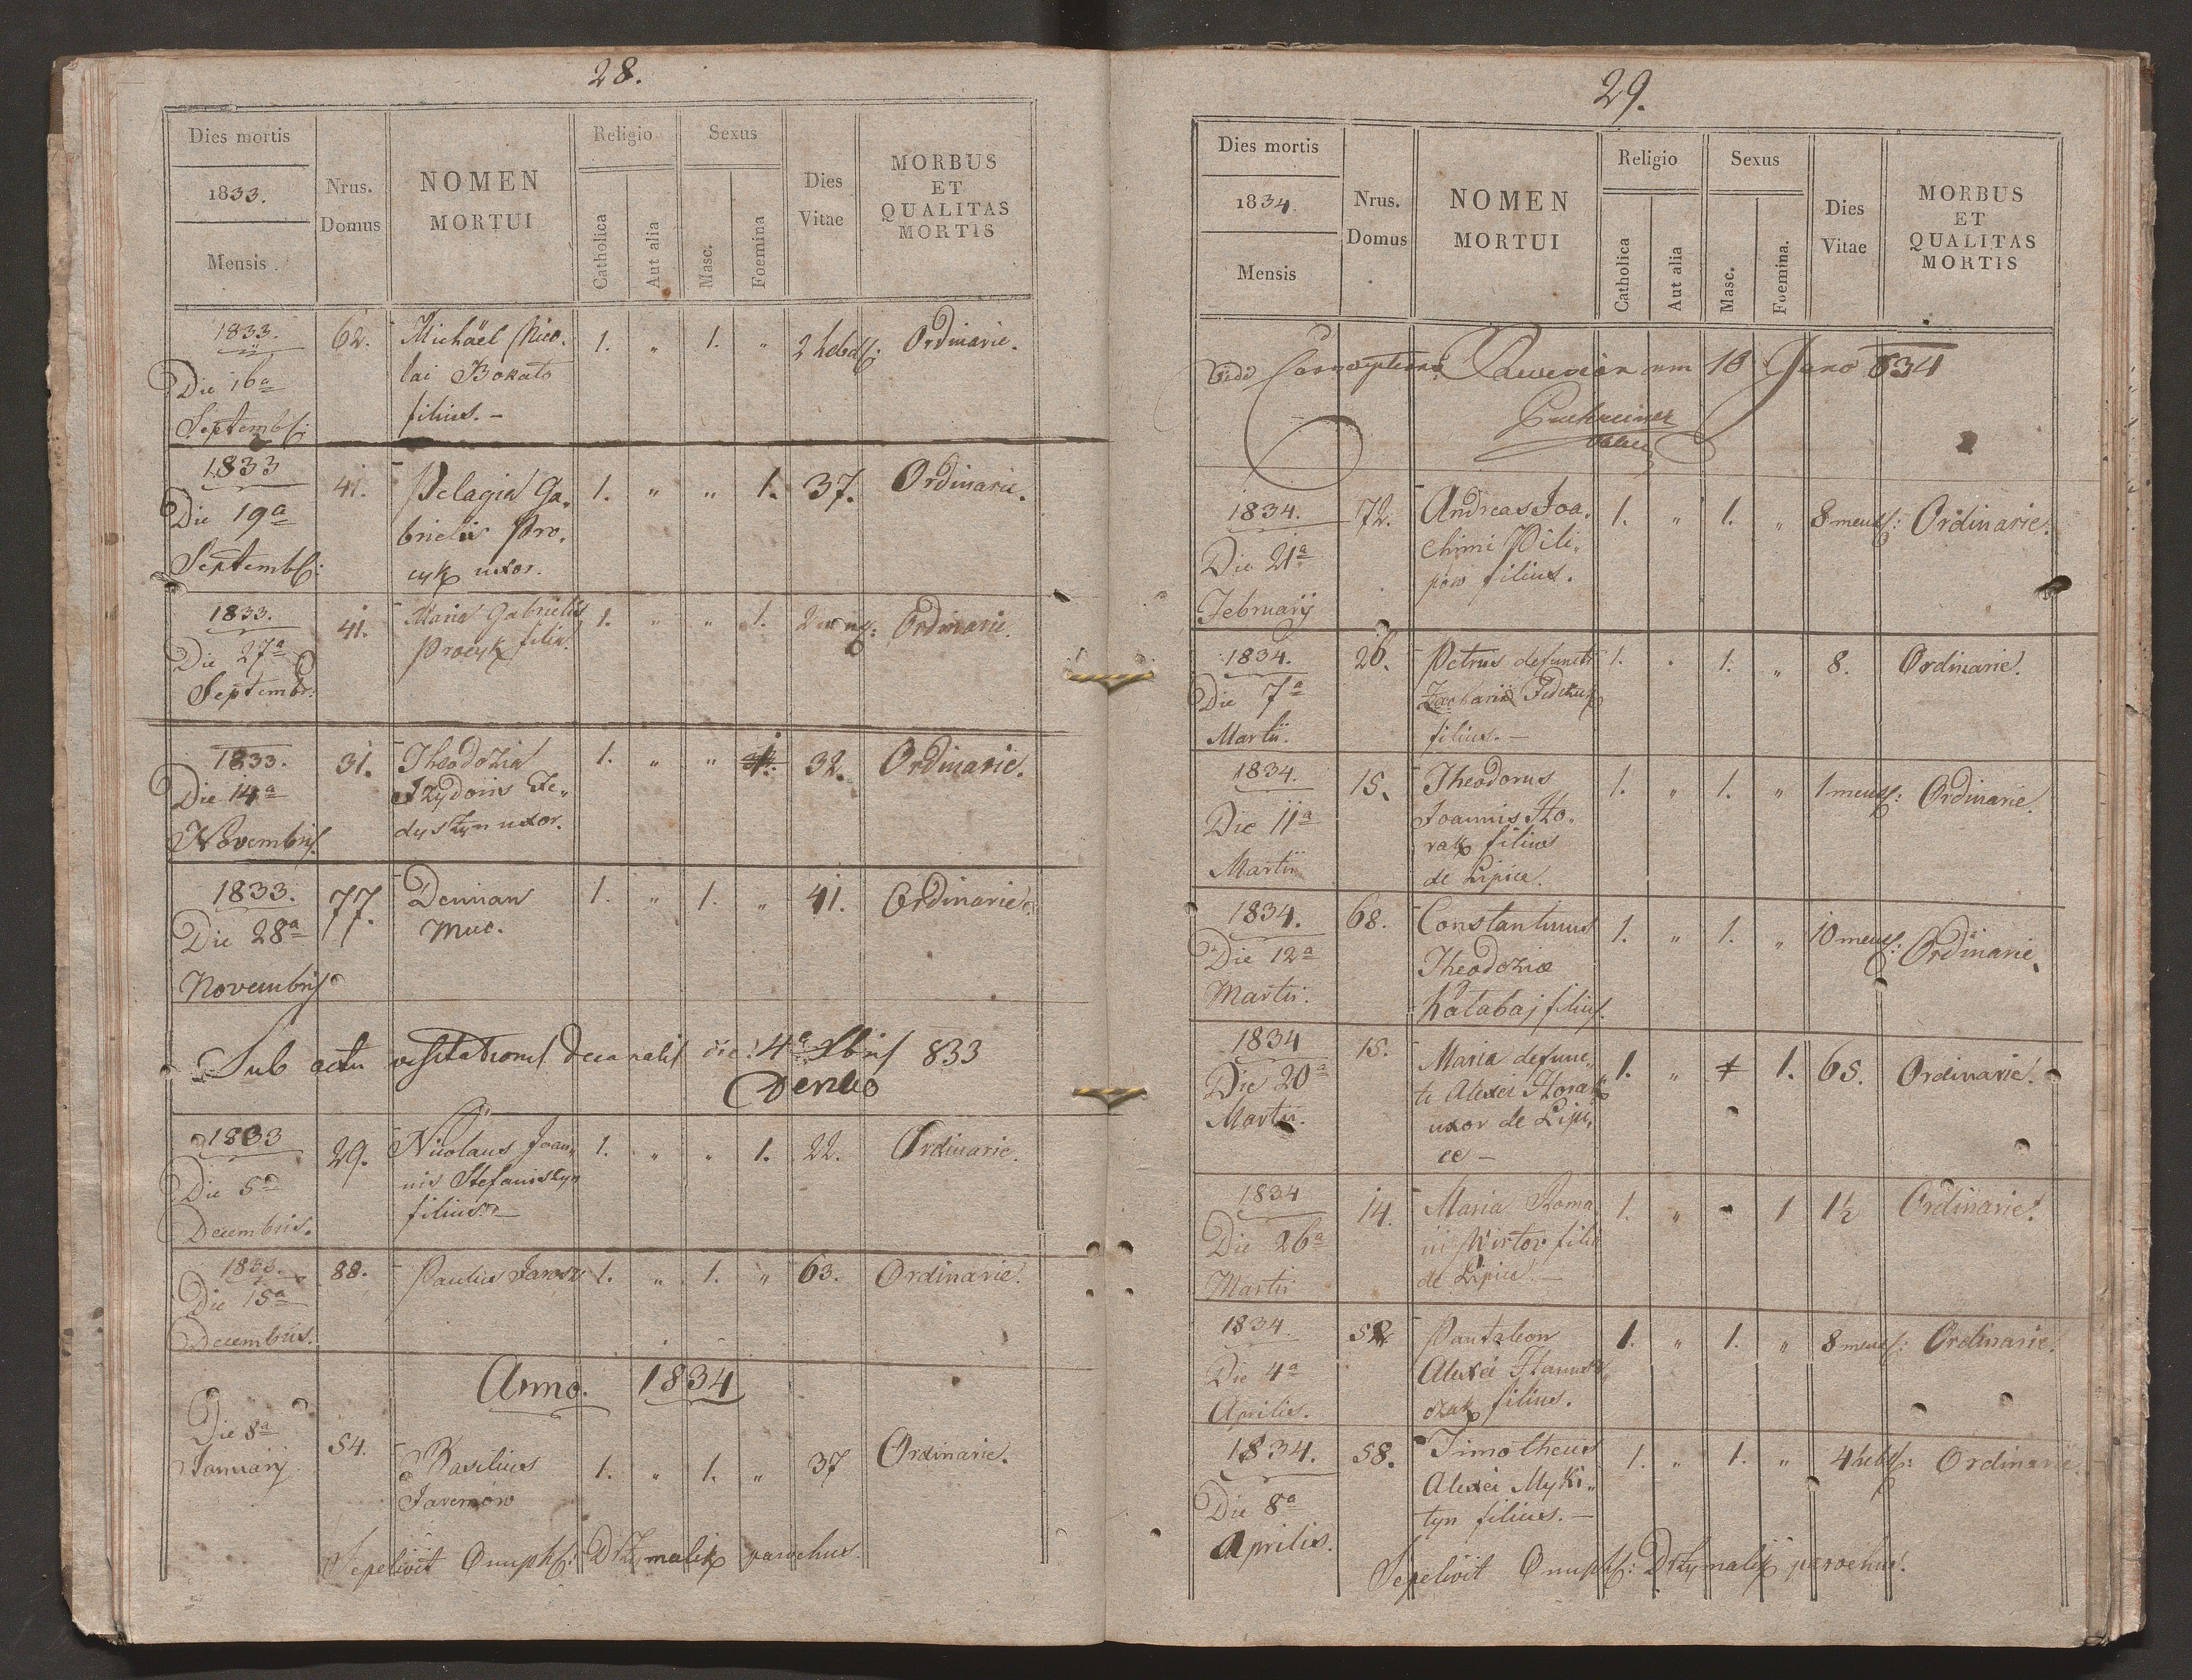 28.
Dies mortis
1833.
Mensis
Nrus.
Domus
NOMEN
MORTUI
Religio
Catholica
Aut alia
Sexus
Masc.
Foemina
Dies
Vitae
MORBUS
ET
QUALITAS
MORTIS
1833. 62. Michäel Nico,, 1. " 1. " 2 hebd: Ordinarie.
Die 16a lai Bokato
Septemb: filius. –
1833 41. Pelagia Ga,, 1. " " 1. 37. Ordinarie.
Die 19a brielis Pro,,
Septemb: cyk uxor.
1833. 41. Maria Gabrielis 1. " " 1. Ordinarie.
Die 27a Procyk filia.
Septembr:
1833. 31. Theodozia 1. " " 1. 32. Ordinarie.
Die 14a Izydoris Fe,,
Novembris dyszyn uxor.
1833. 77. Demian 1. " 1. " 41. Ordinarie.
Die 28a Muc.
Novembris
Sub actu visitationis Decanalis die 4a Xbris 833
1833 29. Nicolaus Joan,, 1. " " 1. 22. Ordinarie.
Die 5a nis Stefaniszyn
Decembris. filius. –
1833. 88. Paulus Jarosz 1. " 1. " 63. Ordinarie.
Die 15a
Decembris.
Anno. 1834
Die 8a
Januarij 54. Basilius 1. " 1. " 37 Ordinarie.
Jaremów
Sepelivit Onuph: Drzymalik parochus.
29.
Dies mortis
1834.
Mensis
Nrus.
Domus
NOMEN
MORTUI
Religio
Catholica
Aut alia
Sexus
Masc.
Foemina.
Dies
Vitae
MORBUS
ET
QUALITAS
MORTIS
Vidi Conscriptions Revision am 18 834
1834. 72. Andreas Joa,, 1. " 1. " 8 mens: Ordinarie.
Die 21a chimi Pili,,
Februarij pow filius.
1834. 26. Petrus defuncti 1. " 1. " 8. Ordinarie.
Die 7a Zacharia Fedczuk
Martii. filius. –
1834. 15. Theodorus 1. " 1. " 1 mens: Ordinarie.
Die 11a Joannis Ho,,
Martii rak filius
de Lipice.
1834. 68. Constantinus 1. " 1. " 10 mens: Ordinarie.
Die 12a Theodoziæ
Martii. Kałabaj filius.
1834 15. Maria defunc,, 1. " 1. 65. Ordinarie.
Die 20a ti Alexei Horak
Martii. uxor de Lipi,,
ce –
1834 14. Maria Roma 1. " 1 1½ Ordinarie.
Die 26a ni Wirtor filia
Martii de Lipice. –
1834. 52 Pantaleon 1. " 1. " 8 mens: Ordinarie.
Die 4a Alexei
Aprilis. czak filius.
1834. 58. Timotheus 1. " 1. " 4 heb: Ordinarie.
Die 8a Alexei Myki,,
Aprilis. tyn filius. –
Sepelivit Onuph: Drzymalik parochus.